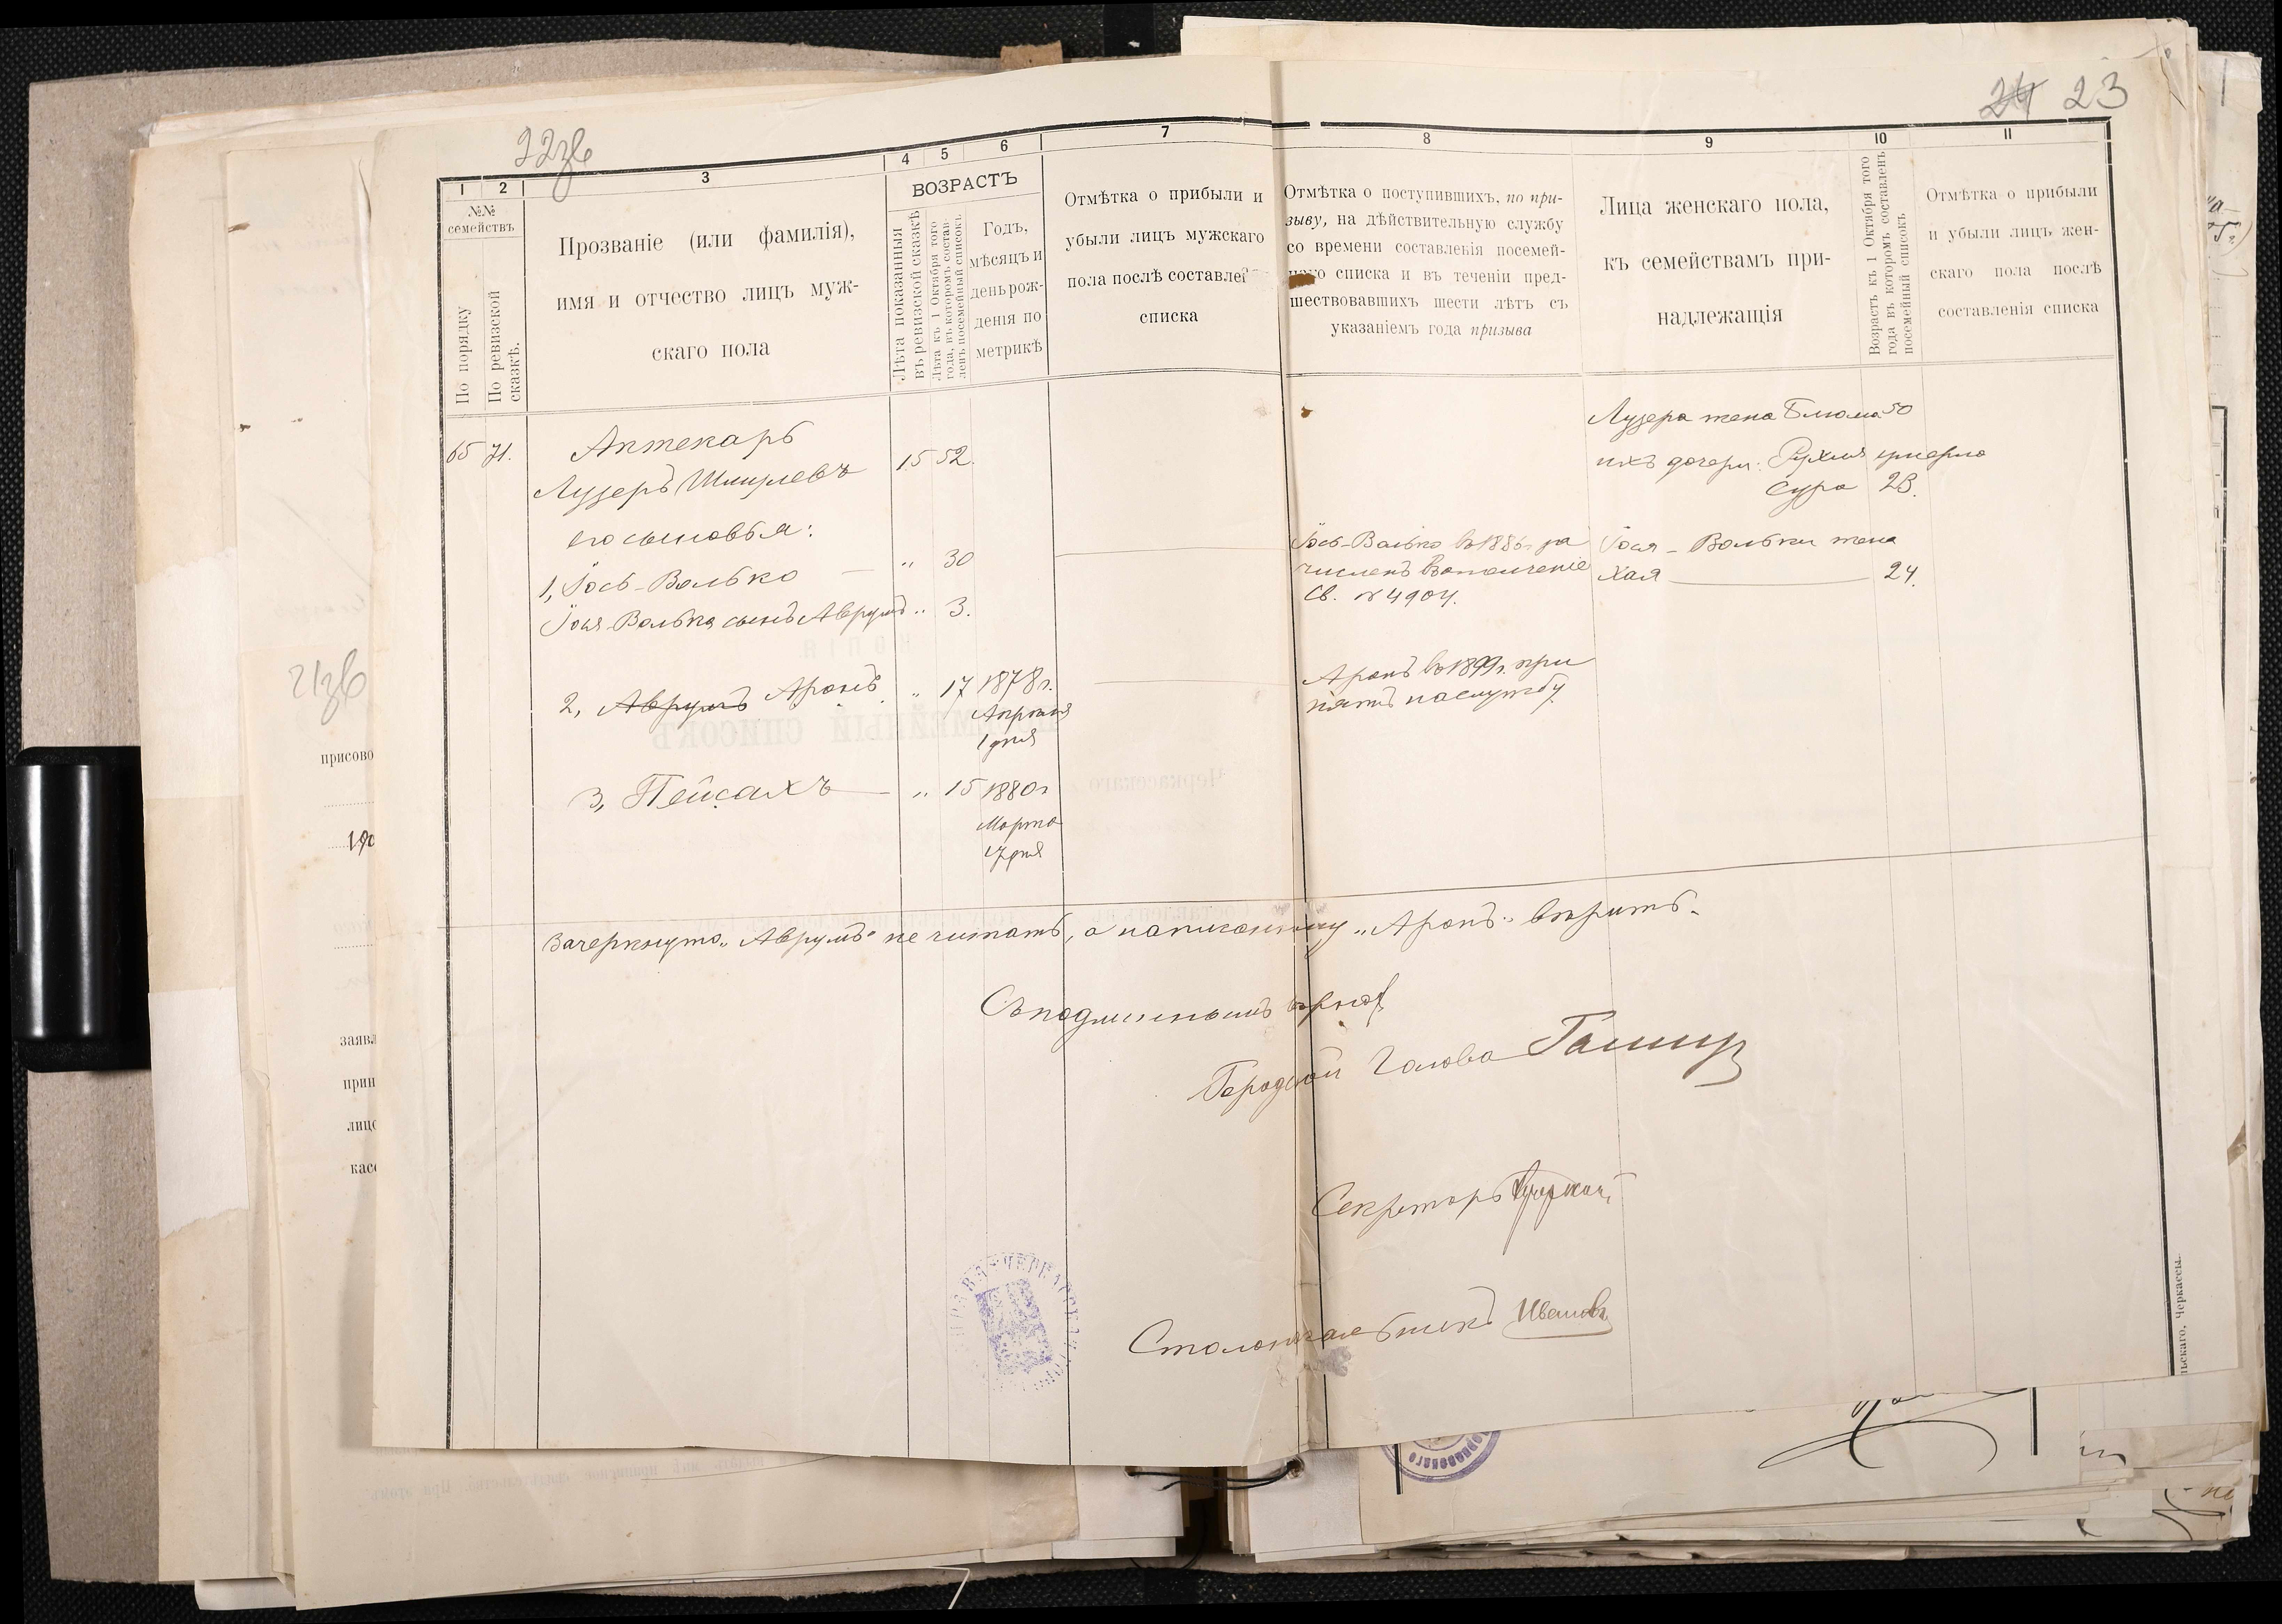 22зв
24 23
1
2
3
4
5
6
7
8
9
10
11
№№
семействъ
По порядку
По ревизской
сказкѣ.
Прозваніе (или фамилія),
имя и отчество лицъ муж-
скаго пола
ВОЗРАСТЪ
Лѣта показанныя
въ ревизской сказкѣ
Лѣта къ 1 Октября того
года, въ которомъ состав-
ленъ посемейный списокъ.
Годъ,
мѣсяцъ и
день рож-
денія по
метрикѣ
Отмѣтка о прибыли и
убыли лицъ мужскаго
пола послѣ составле
списка
Отмѣтка о поступившихъ, по при-
зыву, на дѣйствительную службу
со времени составленія посемей-
наго списка и въ теченіи пред-
шествовавшихъ шести лѣтъ съ
указаніемъ года призыва
Лица женскаго пола,
къ семействамъ при-
надлежащія
Возрастъ къ 1 Октября того
года въ которомъ составленъ
посемейный списокъ
Отмѣтка о прибыли
и убыли лицъ жен-
скаго пола послѣ
составленія списка
65 71.
Аптекарь
Лузеръ Шмулевъ 15 52.
его сыновья:
1, Іось-Волько — " 30
Іося-Волька сынъ Аврумъ " 3.
2, Аврумъ Аронъ " 17 1878 г.
Апрѣля
1 дня
3, Пейсахъ — " 15 1880 г
Марта
17 дня
Іось-Волько въ 188 г за
численъ въ ополченіе
Св. № 4904.
Аронъ въ 1899 г. при
нятъ на службу.
Лузера жена Блюма 50
ихъ дочери: Рухля умерла
Сура 23.
Іося-Вольки жена
Хая — 24.
Зачеркнуто „Аврумъ" не читать, а написанному „Аронъ" вѣрить.
Съ подлиннымъ вѣрно:
Городской Голова
Секретарь
Столоначальникъ Ивановъ
21зв
присово
190
заявл
прин
лицо
касс
льскаго, Черкассы.